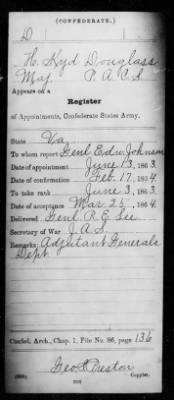 (CONFEDERATE.)
D
H. Kyd Douglass
Maj P.A.C.S
Appears on a
Register
of Appointments, Confederate States Army.
State Va
To whom report Genl Edw. Johnson
Date of appointment June 13, 1863.
Date of confirmation Feb. 17, 1864
To take rank June 3, 1863.
Date of acceptance Mar 25, 1864.
Delivered Genl. R. E. Lee
Secretary of War J. A. S.
Remarks: Adjutant Generals
Dept
Confed. Arch., Chap. 1, File No. 86, page 136
Geo Preston
Copyist.